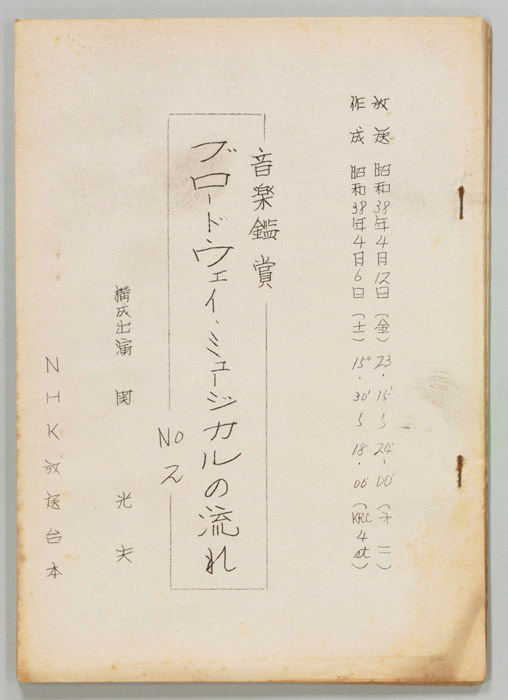 放送 昭和38年4月12日(金)23・15'〜24・00'(オ二)
作成 昭和38年4月6日(土)15°・30'〜18・00'(KRC4st)
音楽鑑賞
ブロードウェイ・ミュージカルの流れ
No 2
構成出演 関 光夫
NHK放送台本